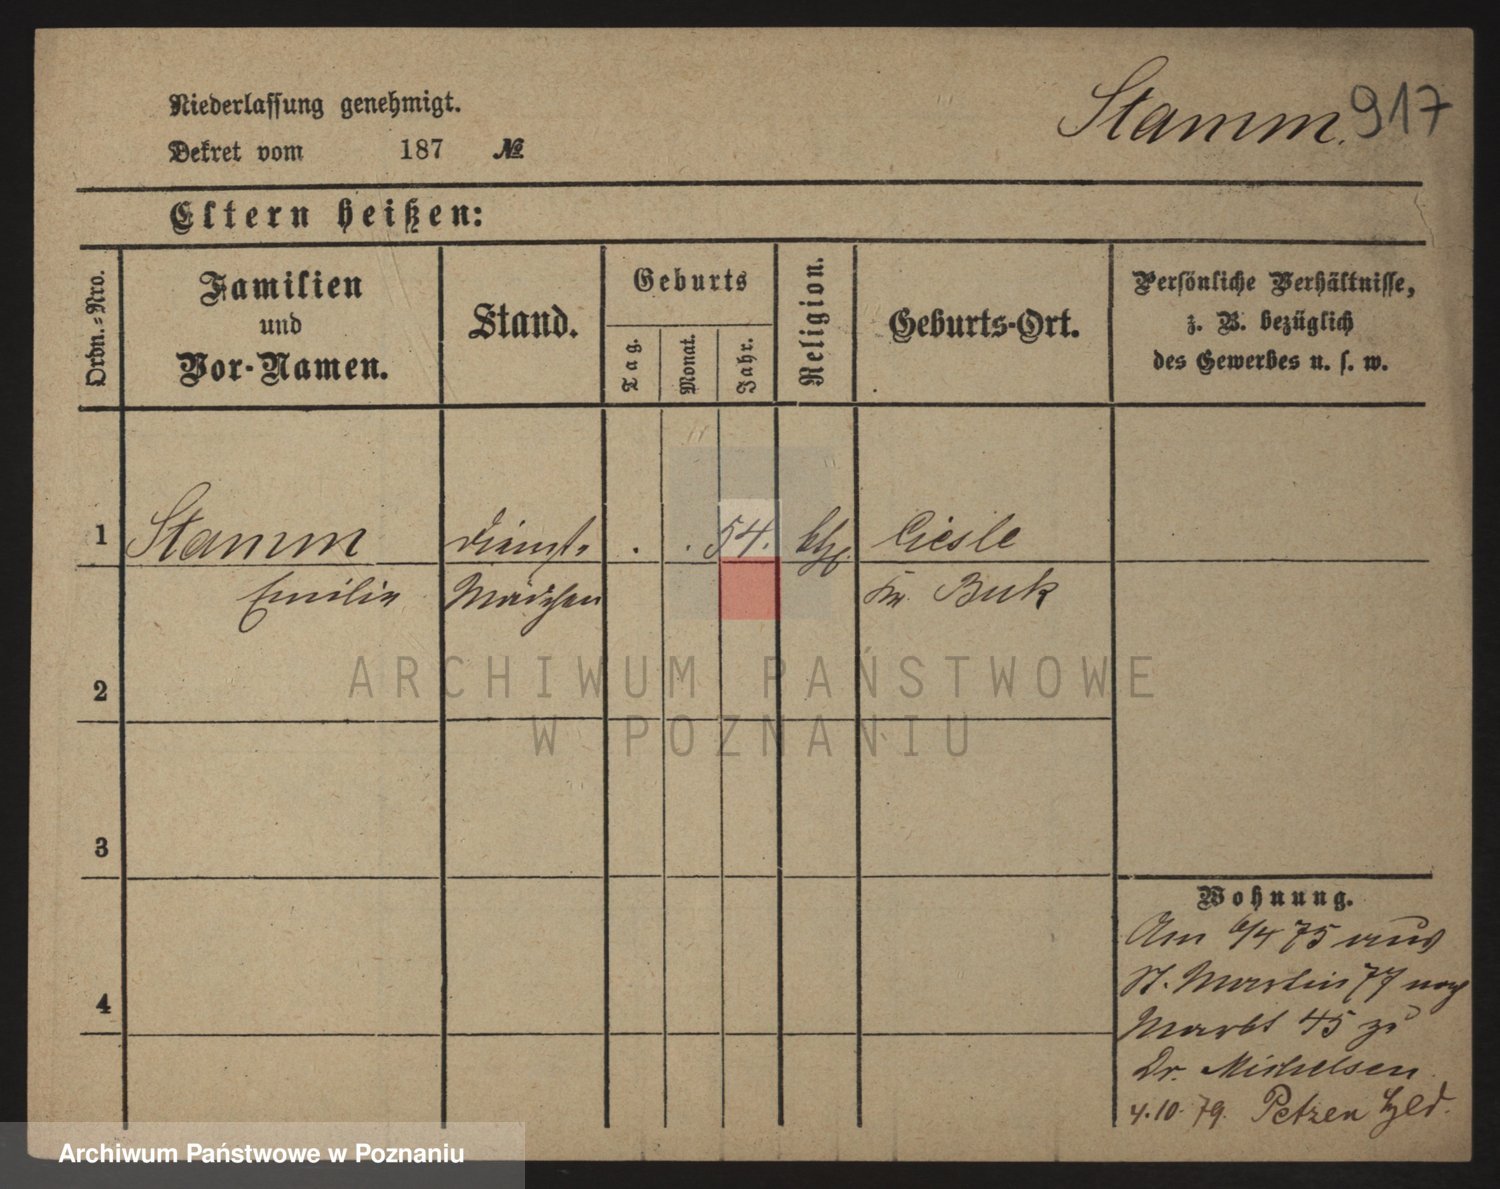 Niederlassung genehmigt.
Stamm. 917
Dekret vom 187 №
Eltern heißen:
Ordn.-Nro.
Familien
und
Vor-Namen.
Stand.
Geburts
Tag.
Monat.
Jahr.
Religion.
Geburts-Ort.
Persönliche Verhältnisse,
z. B. bezüglich
des Gewerbes u. s. w.
1 Stamm Dienst- . . 54. Ciesle
Emilie Mädchen Kr. Buk
ARCHIWUM PAŃSTWOWE
W POZNANIU
2
3
4
Wohnung.
Am 6/4 75 aus
St. Martin 77 nach
Markt 45 zu
Dr. Michelsen
4.10.79. Petzen
Archiwum Państwowe w Poznaniu